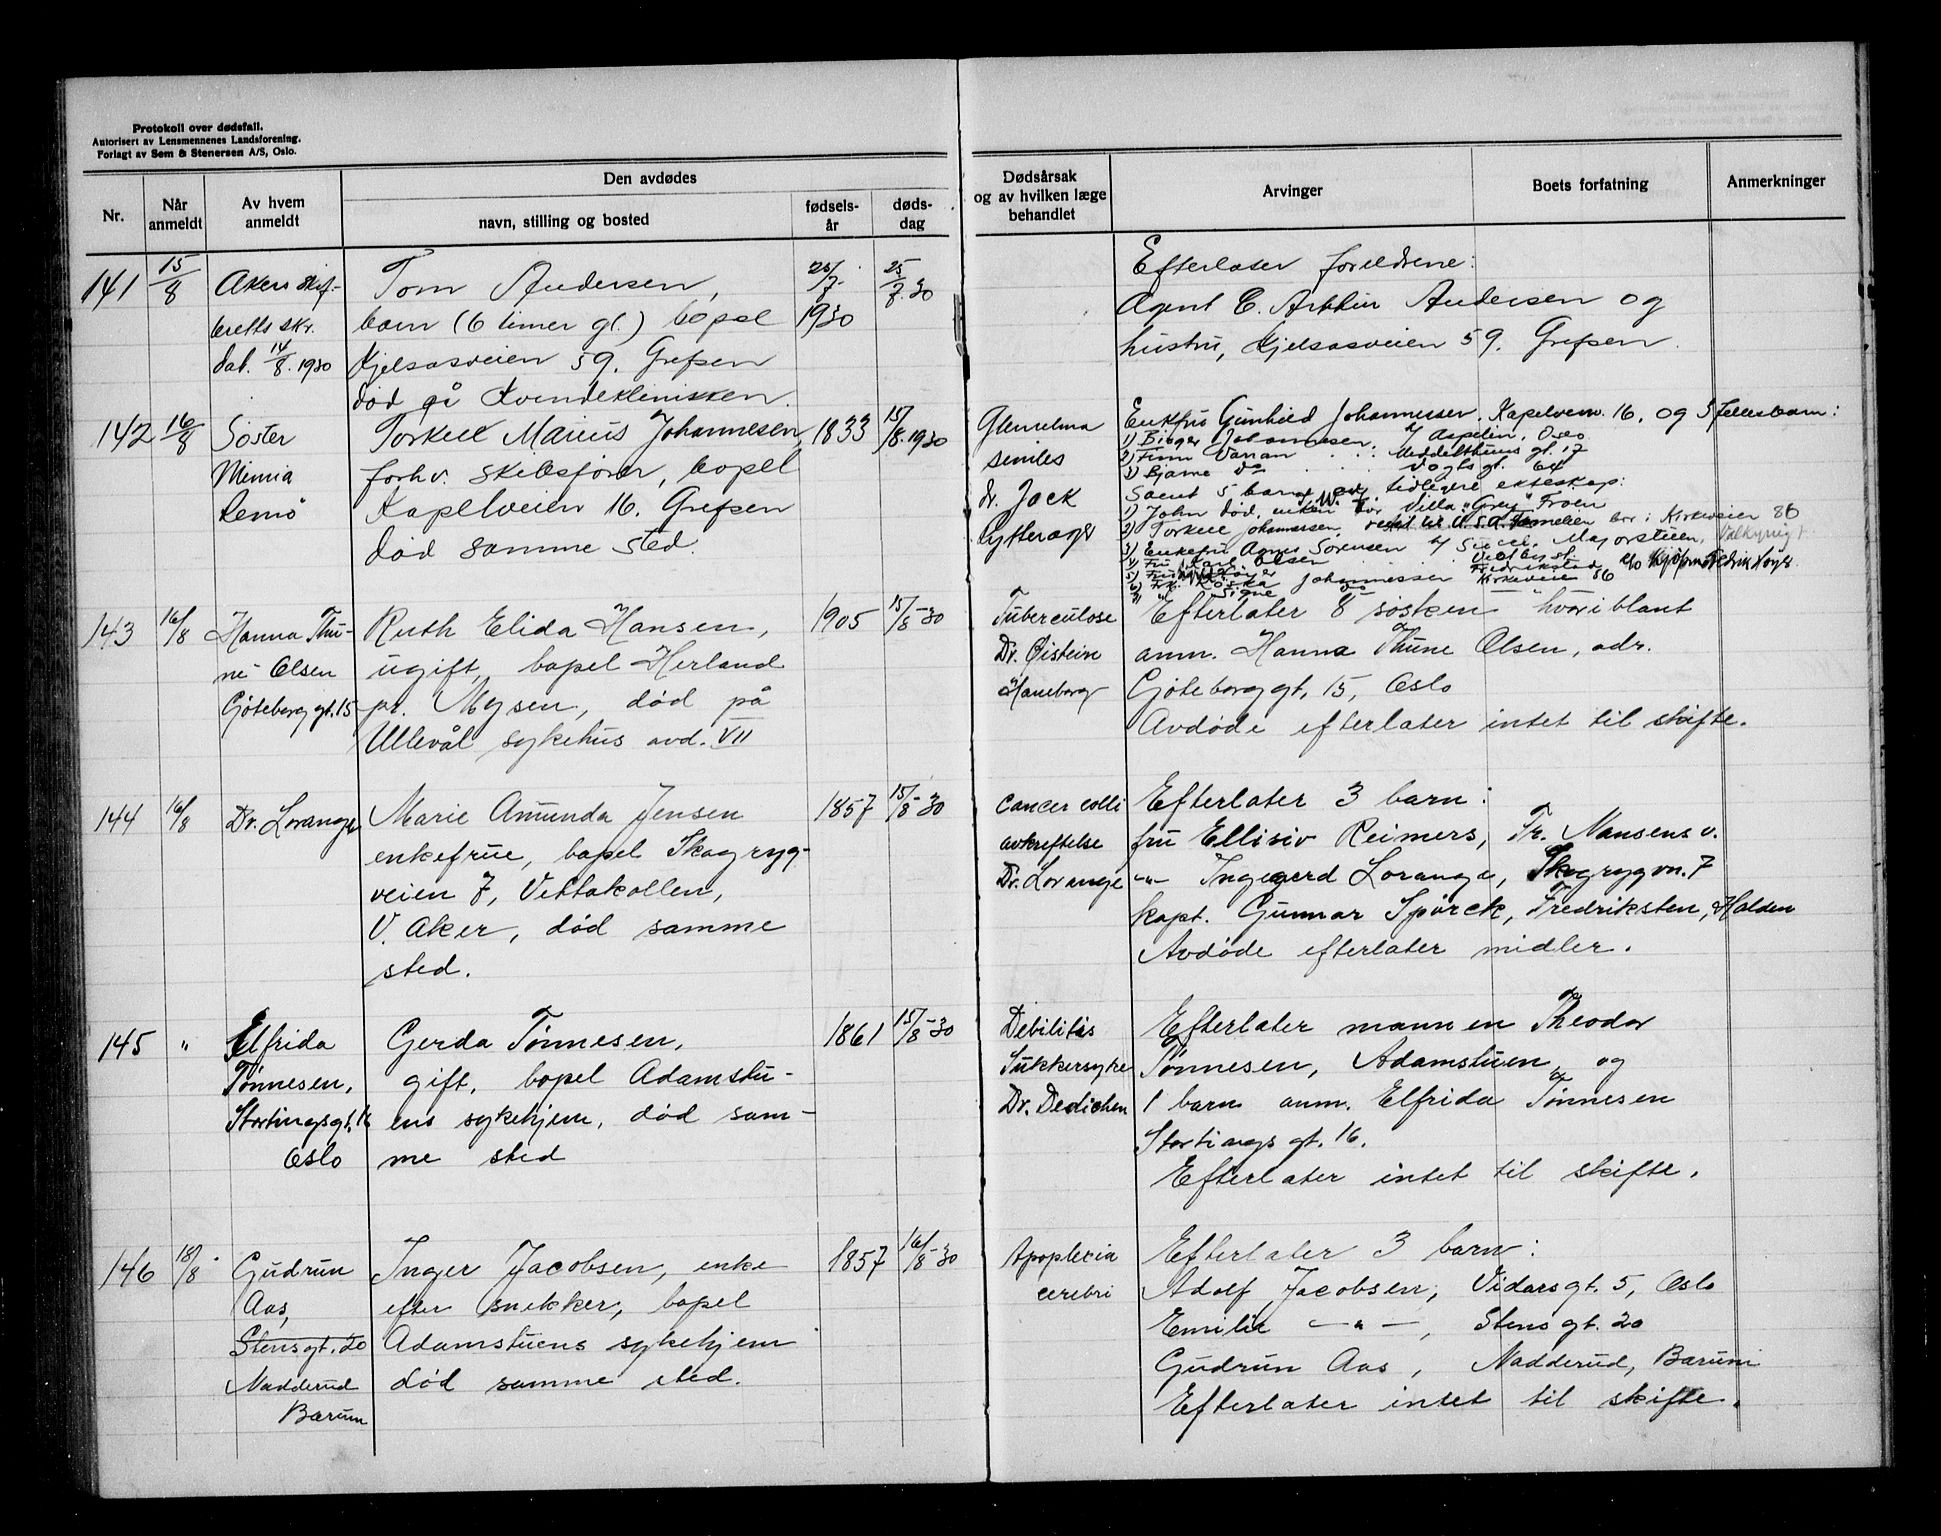 Protokoll over dødsfall.
Autorisert av Lensmennenes Landsforening.
Forlagt av Sem & Stenersen A/S, Oslo.
Nr.
Når anmeldt
Av hvem anmeldt
Den avdødes
navn, stilling og bosted
fødsels-år
døds-dag
Dødsårsak og av hvilken læge behandlet
Arvinger
Boets forfatning
Anmerkninger
141
15/8
Akers skif-
teretts skr.
dat. 14/8. 1930
Tom Andersen,
barn (6 timer gl.) bopel
Kjelsasveien 59. Grefsen
død på Kvindeklinikken.
25/7-
1930
25/7.30
Efterlater foreldrene:
Agent C. Arthur Andersen og
hustru, Kjelsasveien 59. Grefsen.
142
16/8
Søster
Minna
Lemo
Torkel Marius Johannesen,
forhv. skibsfører, bopel
Kapelveien 16. Grefsen
død samme sted.
1833
15/8.1930
seniles
dr. Jack
Enkefru Gunhild Johannessen, Kapelveien 16. og 3 fellesbarn:
1) Birger Johannesen, Aspelin, Oslo
2) Finn Meddelthuns gt. 17
3) Bjarne do Vogts gt. 64
Samt 5 barn av tidligere ekteskap:
1) John død, enken bor Villa "Grey" Froen
2) Torkel Johannessen, U.S.A. familien bor i Kirkeveien 86
3) Enkefru Agnes Sørensen Majorstuen,
4) Fru Karl Olsen
5) Fru Fredrikstad
6) Frk. Johannessen Kirkeveien 86
7) " Signe do
143
16/8
Hanna Thu-
ne Olsen
Gøteborg gt. 15
Ruth Elida Hansen,
ugift, bopel Herland
pr. Mysen, død på
Ullevål sykehus avd. VII
1905
15/8-30
Tuberculose
Dr. Øistein
Haneborg
Efterlater 8 søsken hvoriblant
anm. Hanna Thune Olsen, adr.
Gøteborggt. 15, Oslo
Avdøde efterlater intet til skifte.
144
16/8
Dr. Lorange
Marie Amunda Jensen
enkefrue, bopel Skogryg-
veien 7, Vettakollen,
V. Aker, død samme
sted.
1857
15/8-30
cancer colli
avkreftelse
Dr. Lorange
Efterlater 3 barn:
fru Ellisiv Reimers, Fr. Nansens v.
-"- Ingegerd Lorange, Skogrygvn. 7
kapt. Gunnar Spørck, Fredriksten, Halden
Avdøde efterlater midler.
145
"
Elfrida
Tønnesen,
Stortingsgt. 16
Oslo
Gerda Tønnesen,
gift, bopel Adamstu-
ens sykehjem, død sam-
me sted
1861
15/8-30
Debilitas
Sukkersyke
Dr. Dedichen
Efterlater mannen Theodor
Tønnesen, Adamstuen, og
1 barn anm. Elfrida Tønnesen
Stortings gt. 16.
Efterlater intet til skifte.
146
18/8
Gudrun
Aas,
Stensgt. 20
Nadderud
Bærum
Inger Jacobsen, enke
efter snekker, bopel
Adamstuens sykehjem
død samme sted.
1857
16/8-30
Apoplexia
cerebri
Efterlater 3 barn:
Adolf Jacobsen, Vidarsgt. 5, Oslo
Emilie —"—, Stens gt. 20
Gudrun Aas, Nadderud, Bærum
Efterlater intet til skifte.